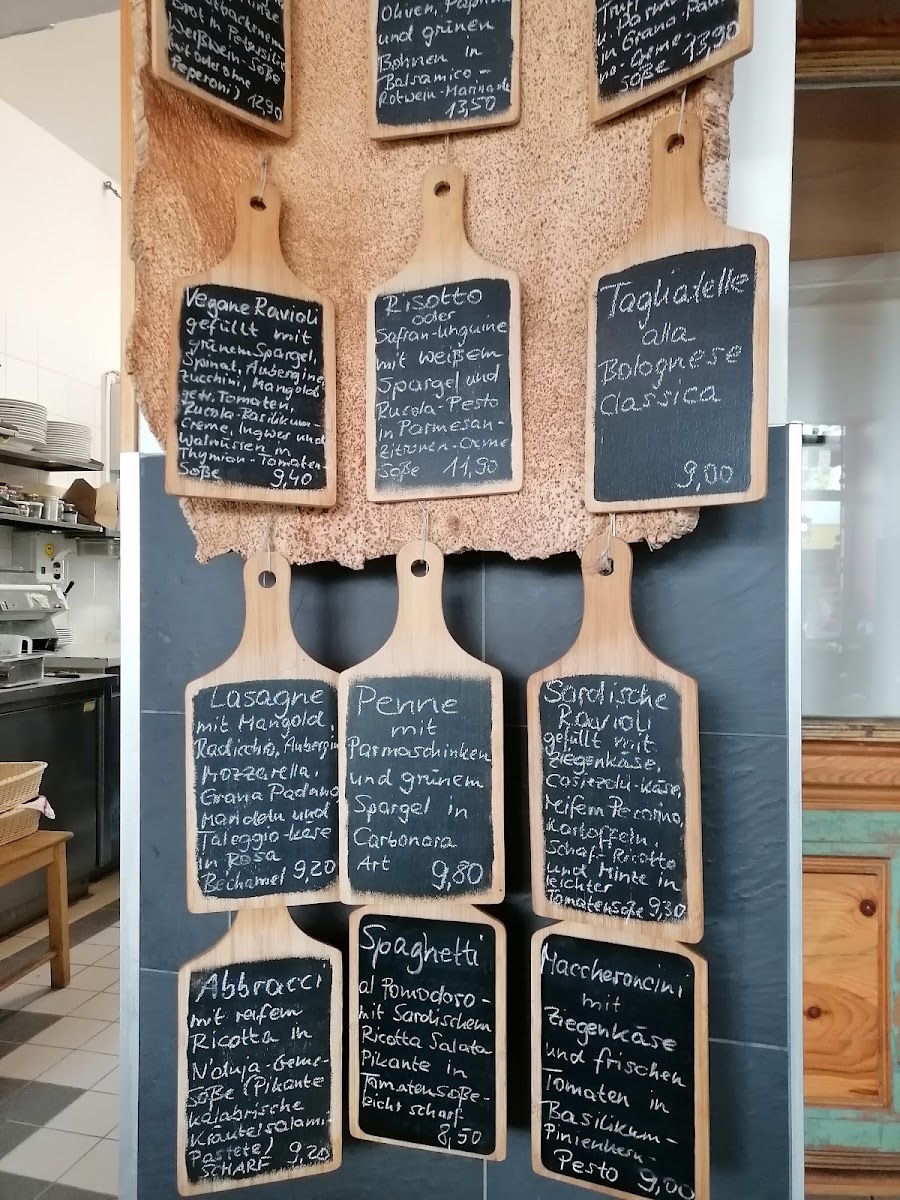 Brot in Petersilie
Weißwein-Soße
(mit oder ohne
Peperoni) 12,90
Oliven, Paprika
und grünen
Bohnen in
Balsamico-
Rotwein-Marinade
13,50
u. Parma
in Grana-Pada
no-Creme
soße 13,90
Vegane Ravioli
gefüllt mit
grünem Spargel,
Spinat, Aubergine,
zucchini, Mangold,
getr. Tomaten,
Rucola-Basilikum-
Creme, Ingwer und
Walnüssen in
Thymian-Tomaten-
Soße 9,40
Risotto
oder
Safran-Linguine
mit weißem
Spargel und
Rucola-Pesto
in Parmesan-
Zitronen-Creme
Soße 11,90
Tagliatelle
alla
Bolognese
Classica
9,00
Lasagne
mit Mangold,
Radicchio, Aubergin
Mozzarella,
Grana Padano
Mandeln und
Taleggio-Käse
in Rosa
Bechamel 9,20
Penne
mit
Parmaschinken
und grünem
Spargel in
Carbonara
Art 9,80
Sardische
Ravioli
gefüllt mit
Ziegenkäse,
Casizolu-Käse,
reifem Pecorino,
Kartoffeln,
Schaf-Ricotta
und Minze in
leichter
Tomatensoße 9,30
Abbracci
mit reifem
Ricotta in
N'duja-Creme-
Soße (Pikante
kalabrische
Kräutelsalami-
Pastete)
SCHARF 9,20
Spaghetti
al Pomodoro-
mit Sardischem
Ricotta Salata
Pikante in
Tomatensoße-
leicht scharf-
8,50
Maccheroncini
mit
Ziegenkäse
und frischen
Tomaten in
Basilikum-
Pinienkern-
Pesto 9,00